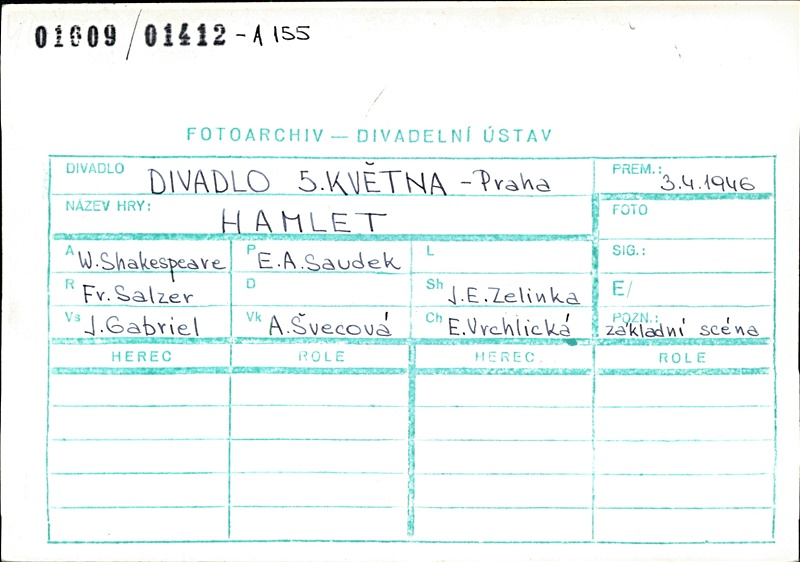 01609/01412-A 155
FOTOARCHIV — DIVADELNÍ ÚSTAV
DIVADLO DIVADLO 5.KVĚTNA -Praha PREM.: 3.4.1946
NÁZEV HRY: HAMLET FOTO
A W.Shakespeare P E.A.Saudek L SIG.:
R Fr. Salzer D Sh J.E.Zelinka E/
Vs J.Gabriel Vk A.Švecová Ch E.Vrchlická POZN.: základní scéna
HEREC ROLE HEREC ROLE